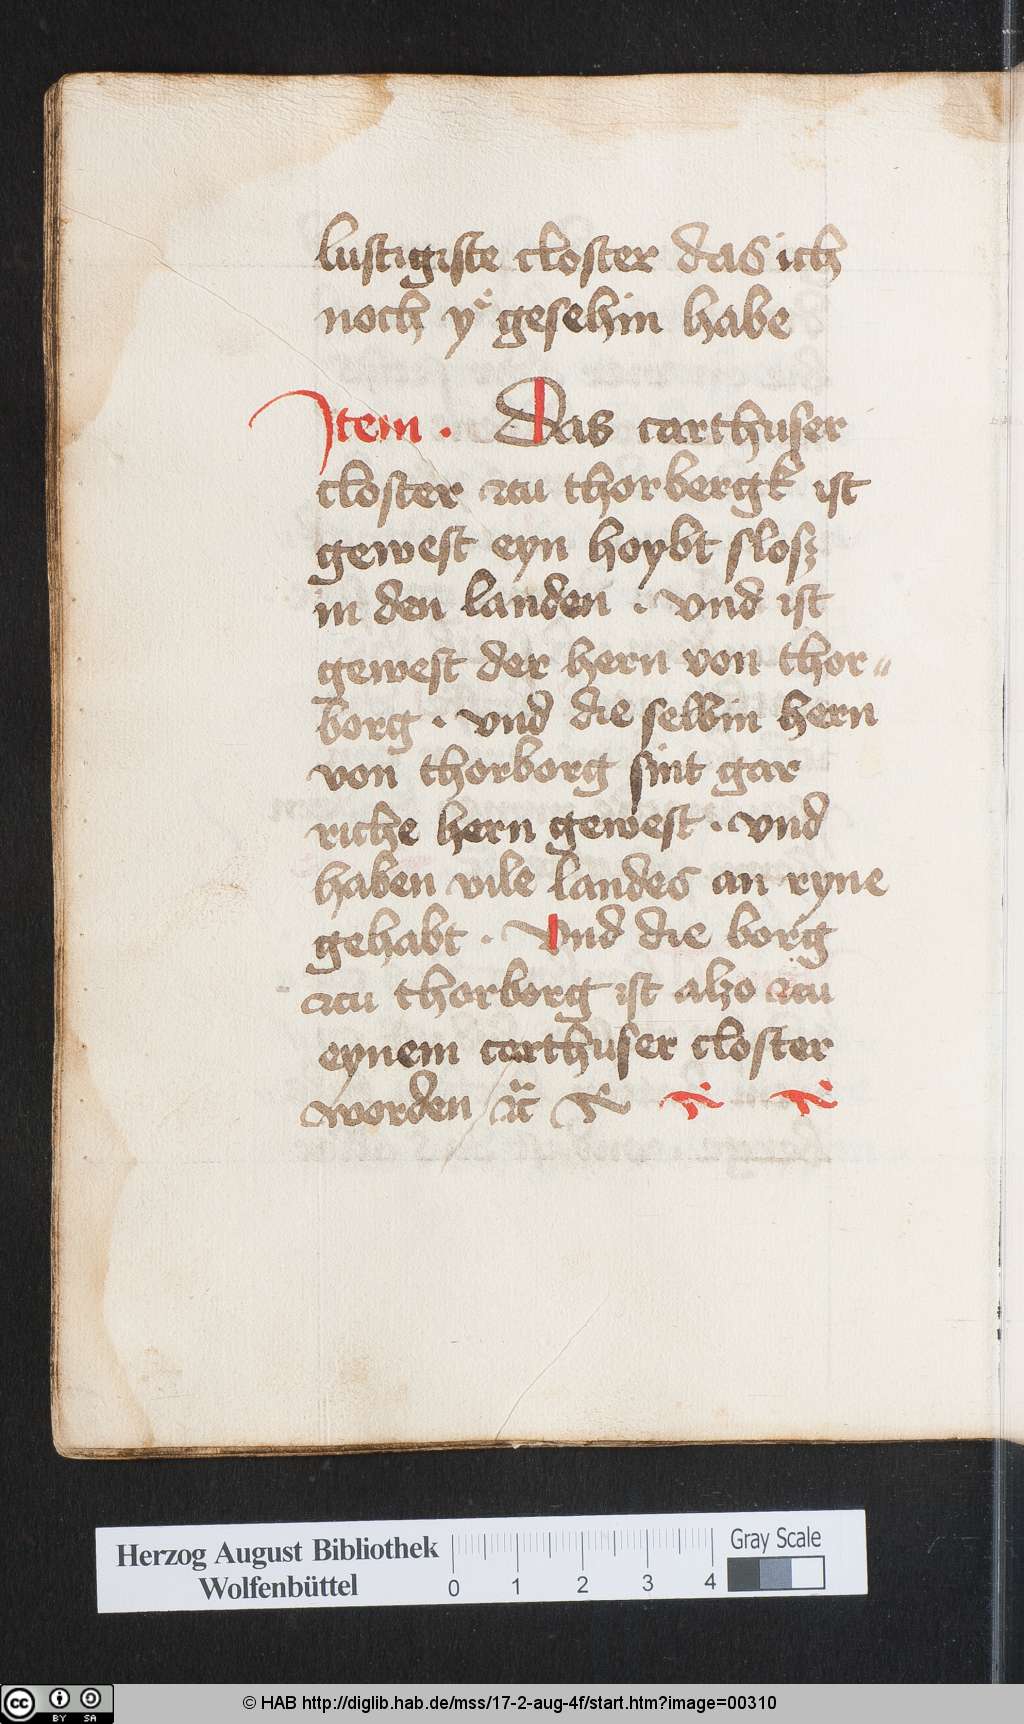 lustigiste closter das ich
noch yͤ gesehin habe
Item . Das carthuser
closter zcu thorbergk ist
gewest eyn hoybt slosz
in den landen . vnd ist
gewest der hern von thor„
borg . vnd die selbin hern
von thorborg sint gar
riche hern gewest . vnd
haben vile landes an ryne
gehabt . Vnd die borg
zcu thorborg ist alzo zcu
eynem carthuser closter
worden ꝛc̃
Herzog August Bibliothek
Wolfenbüttel
0 1 2 3 4
Gray Scale
cc BY SA
© HAB http://diglib.hab.de/mss/17-2-aug-4f/start.htm?image=00310